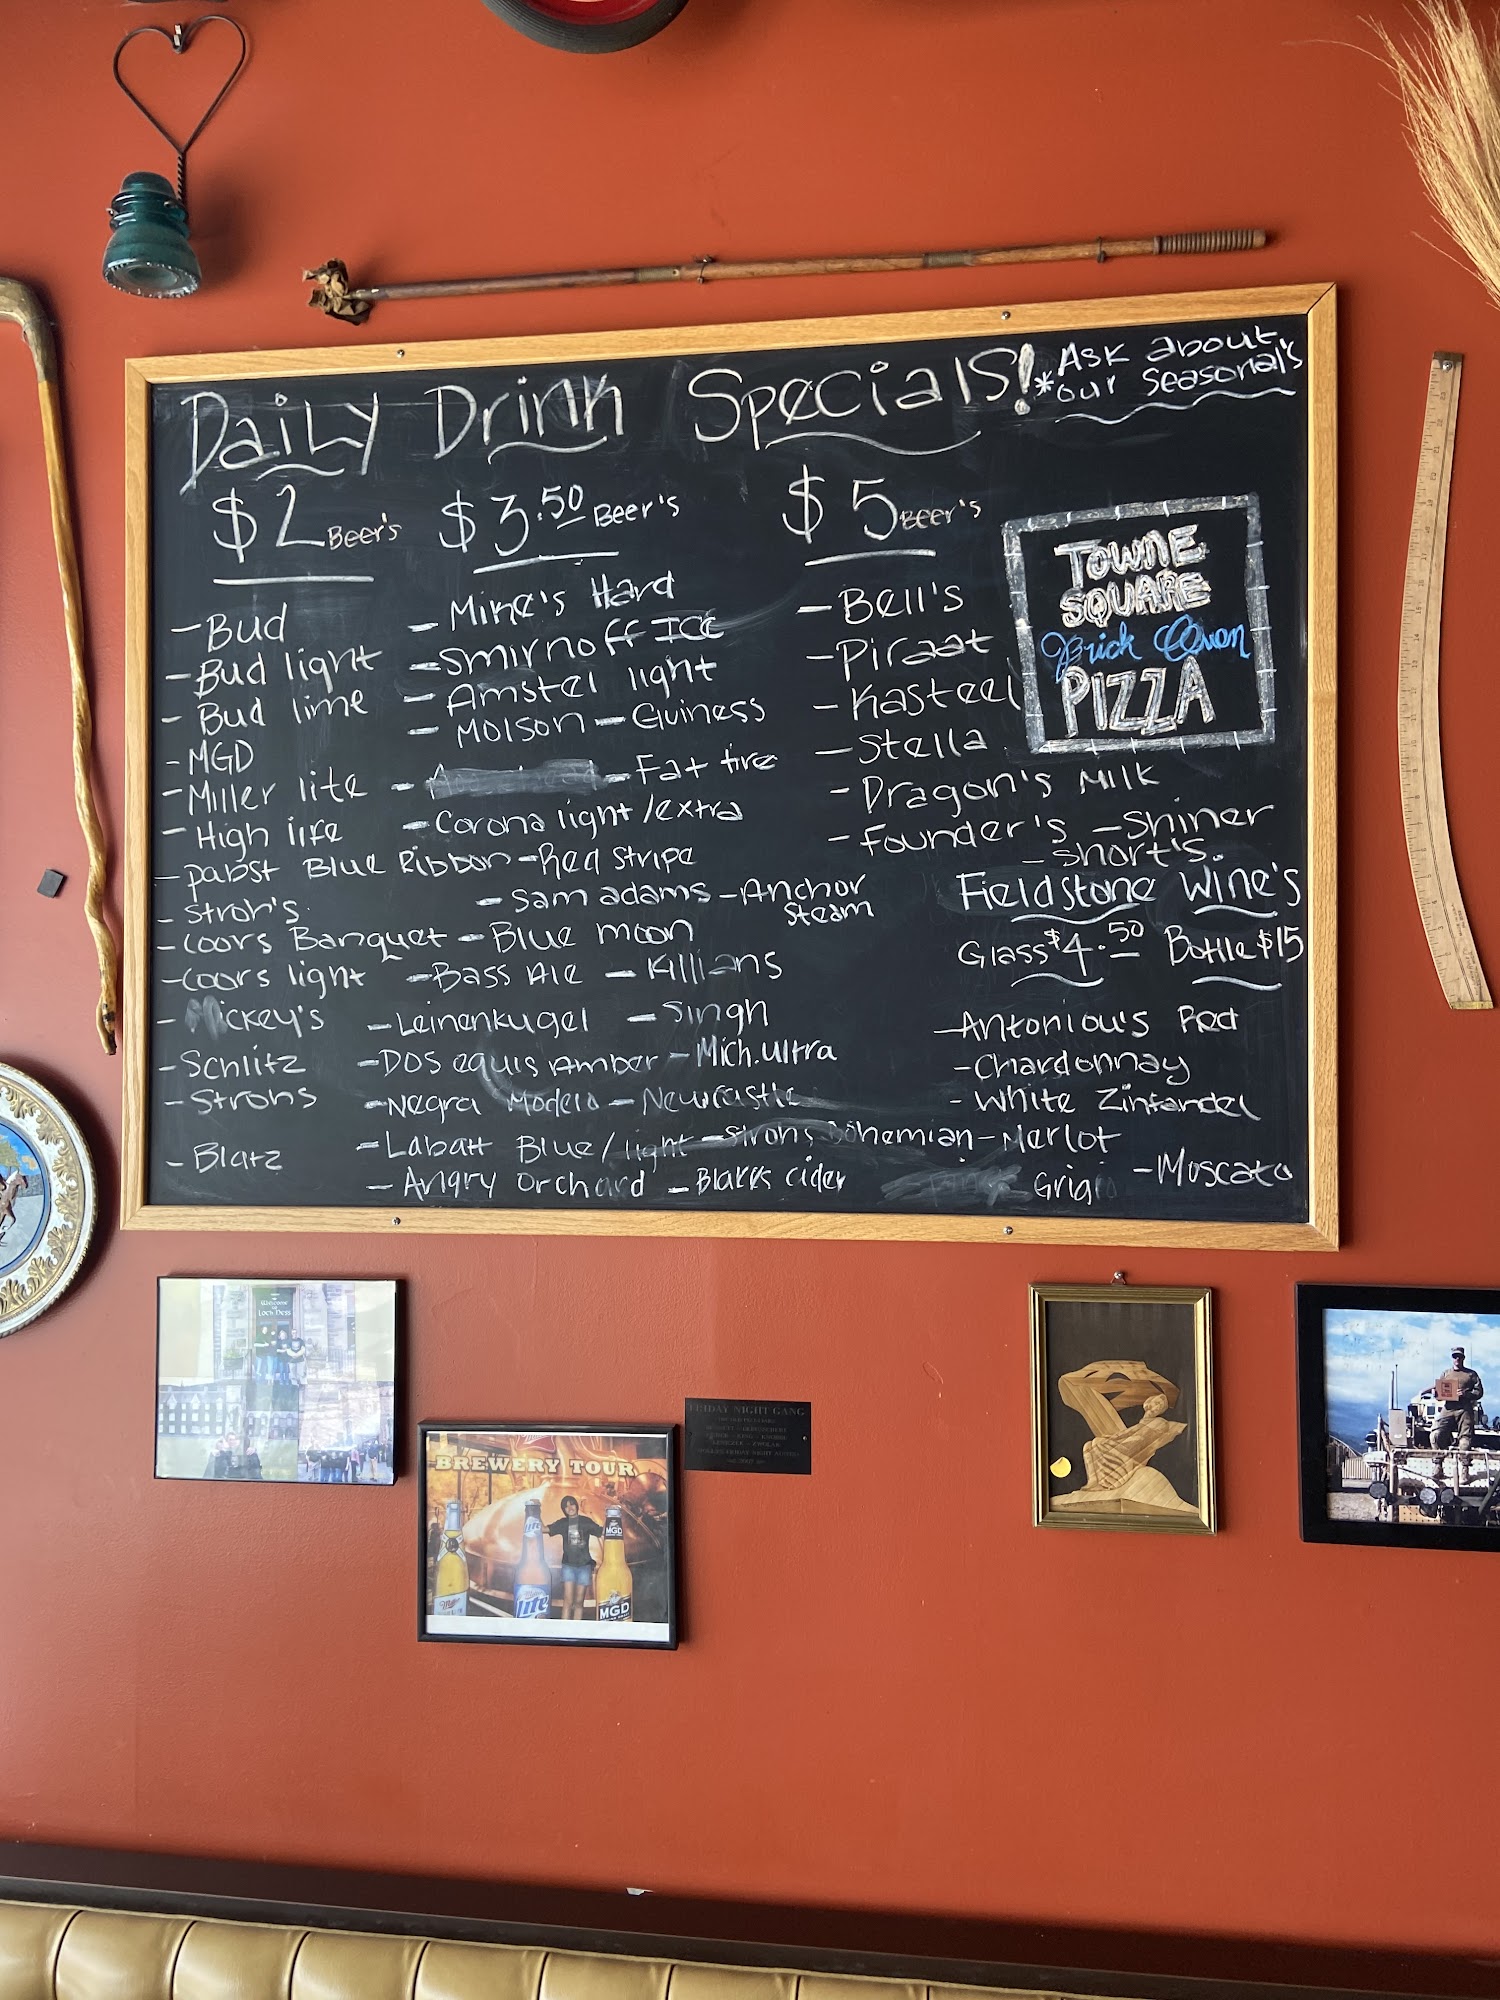 Daily Drink Specials!
*Ask about
our Seasonal's
$2 Beer's
- Bud
- Bud light
- Bud lime
- MGD
- Miller lite
- High life
- Pabst Blue Ribbon
- Stroh's
- Coors Banquet
- Coors light
- Mickey's
- Schlitz
- Strohs
- Blatz
$3.50 Beer's
- Mike's Hard
- Smirnoff ICE
- Amstel light
- Molson - Guiness
- Fat tire
- Corona light/extra
- Red Stripe
- Sam adams - Anchor
Steam
- Blue moon
- Bass Ale - Killians
- Leinenkugel - Singh
- Dos equis Amber - Mich. ultra
- Negra Modelo - Newcastle
- Labatt Blue/light - Strohs Bohemian
- Angry orchard - Blakes cider
$5 Beer's
- Bell's
- Piraat
- Kasteel
- Stella
- Dragon's Milk
- Founder's - Shiner
- Short's.
TOWNE
SQUARE
Brick Oven
PIZZA
Fieldstone Wine's
Glass $4.50 Bottle $15
- Antoniou's Red
- Chardonnay
- White Zinfandel
- Merlot
Grigio - Moscato
Welcome
to
Loch Ness
BREWERY TOUR
Lite
MGD
MGD
FRIDAY NIGHT GANG